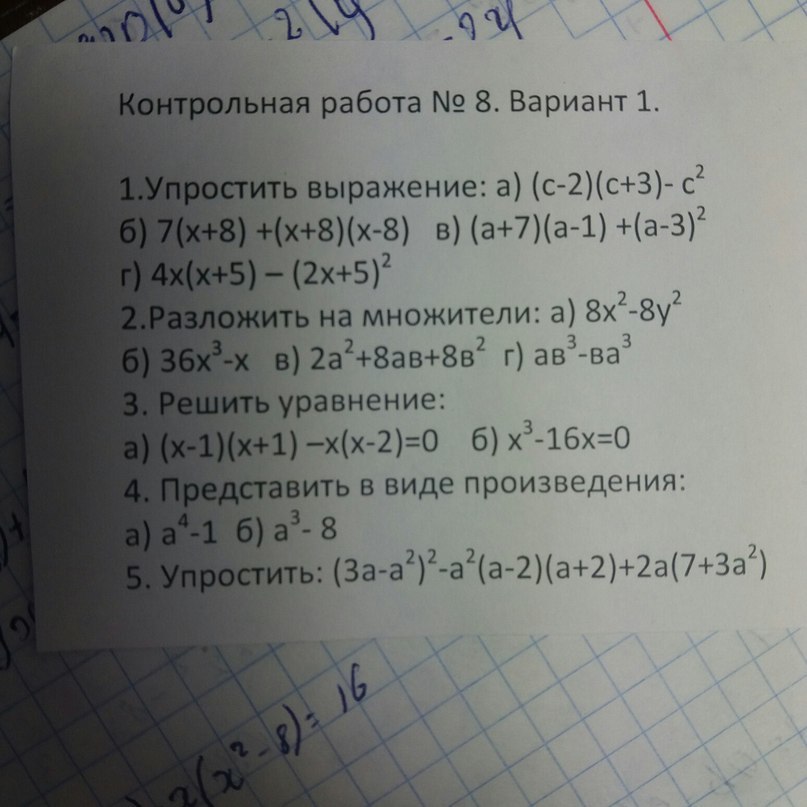 Контрольная работа № 8. Вариант 1.
1.Упростить выражение: а) (с-2)(с+3)- с²
б) 7(х+8) +(х+8)(х-8) в) (а+7)(а-1) +(а-3)²
г) 4х(х+5) – (2х+5)²
2.Разложить на множители: а) 8х²-8у²
б) 36х³-х в) 2а²+8ав+8в² г) ав³-ва³
3. Решить уравнение:
а) (х-1)(х+1) –х(х-2)=0 б) х³-16х=0
4. Представить в виде произведения:
а) а⁴-1 б) а³- 8
5. Упростить: (3а-а²)²-а²(а-2)(а+2)+2а(7+3а²)
2(x²-8)= 16